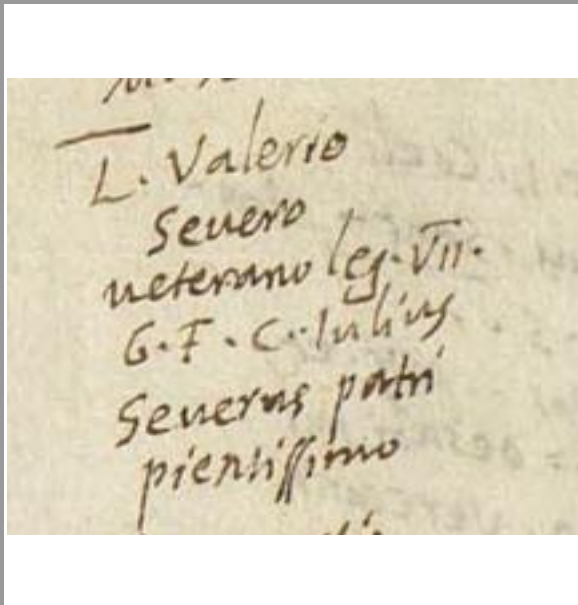 L. Valerio
Seuero
ueterano leg. VII.
G. F. C. Iulius
Seuerus patri
pientissimo